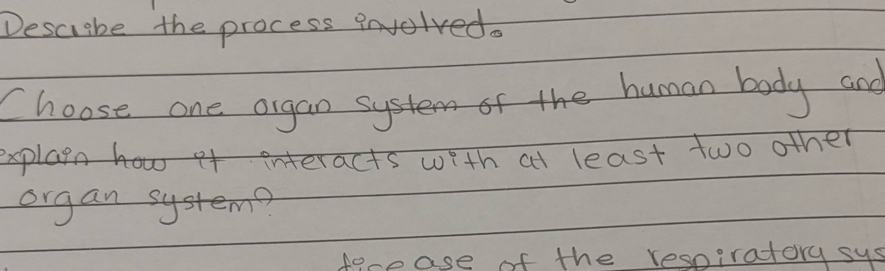 Describe the process involved.
Choose one organ system of the human body and
explain how it interacts with at least two other
organ system?
disease of the respiratory sys